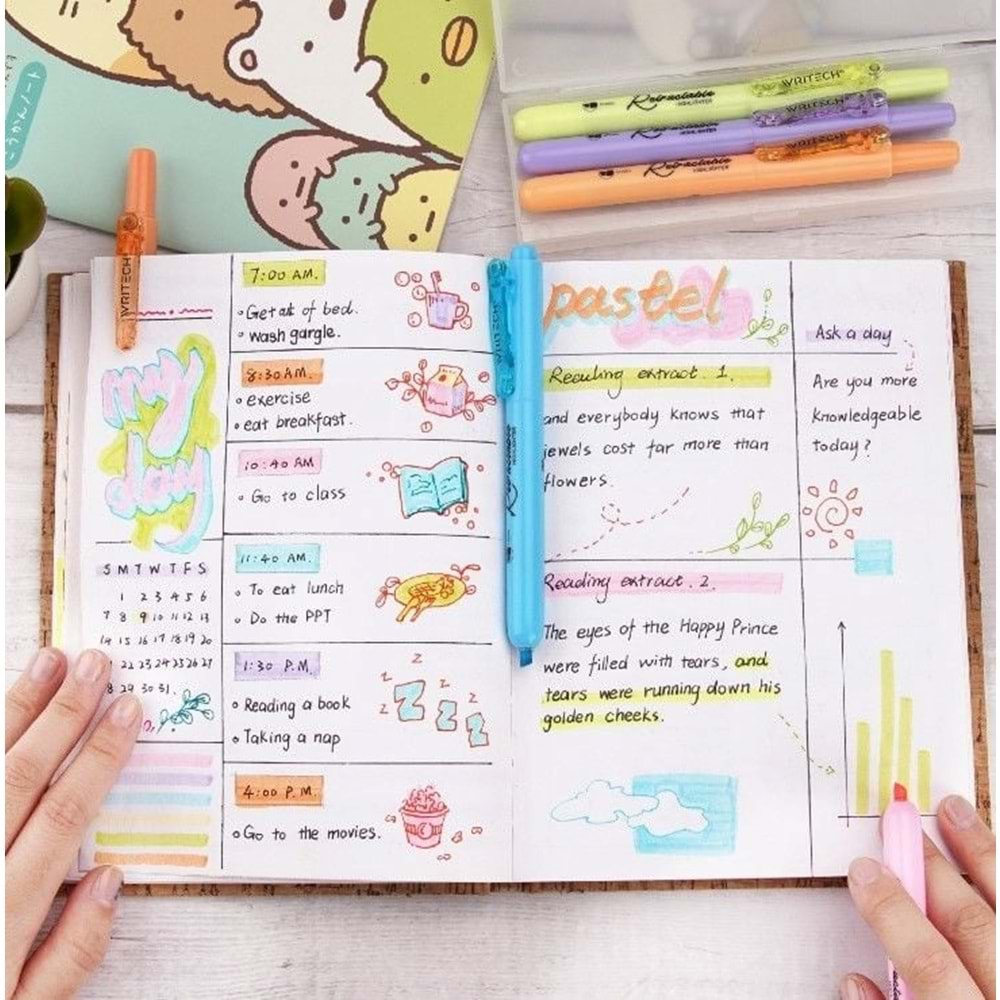 こうかんノート
WRITECH
Retractable
HIGHLIGHTER
WRITECH
Retractable
HIGHLIGHTER
WRITECH
Retractable
HIGHLIGHTER
WRITECH
my
day
S M T W T F S
1 2 3 4 5 6
7 8 9 10 11 12 13
14 15 16 17 18 19 20
22 23 24 25 26 27
28 29 30 31.
7:00 AM.
Get out of bed.
wash gargle.
8:30 AM.
exercise
eat breakfast.
10:40 AM
Go to class
11:40 AM.
To eat lunch
Do the PPT
1:30 P.M.
Reading a book
Taking a nap
z
z
z
Z
Z
Z
4:00 P.M.
Go to the movies.
WRITECH
Retractable
HIGHLIGHTER
pastel
Reading extract. 1.
and everybody knows that
jewels cost far more than
flowers.
Reading extract. 2.
The eyes of the Happy Prince
were filled with tears, and
tears were running down his
golden cheeks.
Ask a day
Are you more
knowledgeable
today?